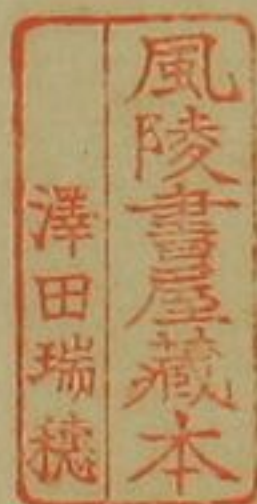 風陵書屋藏本
澤田瑞穂